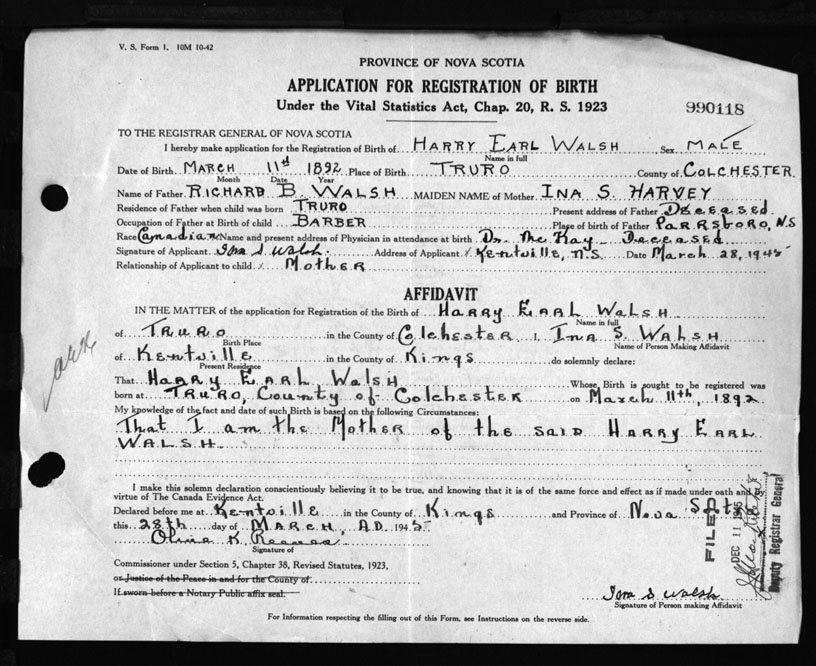 V. S. Form 1. 10M 10-42
PROVINCE OF NOVA SCOTIA
APPLICATION FOR REGISTRATION OF BIRTH
Under the Vital Statistics Act, Chap. 20, R. S. 1923
990118
TO THE REGISTRAR GENERAL OF NOVA SCOTIA
I hereby make application for the Registration of Birth of HARRY EARL WALSH Sex MALE
Name in full
Date of Birth MARCH 11th 1892 Place of Birth TRURO County of COLCHESTER
Month Date Year
Name of Father RICHARD B. WALSH MAIDEN NAME of Mother INA S. HARVEY
Residence of Father when child was born TRURO Present address of Father Deceased
Occupation of Father at Birth of child BARBER Place of birth of Father PARRSBORO, N.S
Race Canadian Name and present address of Physician in attendance at birth Dr. McKay Deceased
Signature of Applicant Ina S Walsh. Address of Applicant Kentville, N.S. Date March 28, 1945
Relationship of Applicant to child MOTHER
AFFIDAVIT
IN THE MATTER of the application for Registration of the Birth of HARRY EARL WALSH
Name in full
of TRURO in the County of Colchester I, INA S. WALSH
Birth Place Name of Person Making Affidavit
of Kentville in the County of Kings do solemnly declare:
Present Residence
That HARRY EARL WALSH Whose Birth is sought to be registered was
born at TRURO, County of Colchester on March 11th, 1892
My knowledge of the fact and date of such Birth is based on the following Circumstances:
That I am the Mother of the said HARRY EARL
WALSH
I make this solemn declaration conscientiously believing it to be true, and knowing that it is of the same force and effect as if made under oath and by
virtue of The Canada Evidence Act.
Declared before me at Kentville in the County of Kings and Province of Nova
this 28th day of MARCH, A.D. 1945
Signature of
Commissioner under Section 5, Chapter 38, Revised Statutes, 1923,
or Justice of the Peace in and for the County of
If sworn before a Notary Public affix seal.
Ina S Walsh
Signature of Person making Affidavit
For Information respecting the filling out of this Form, see Instructions on the reverse side.
FILED
DEC 11 1945
Deputy Registrar General